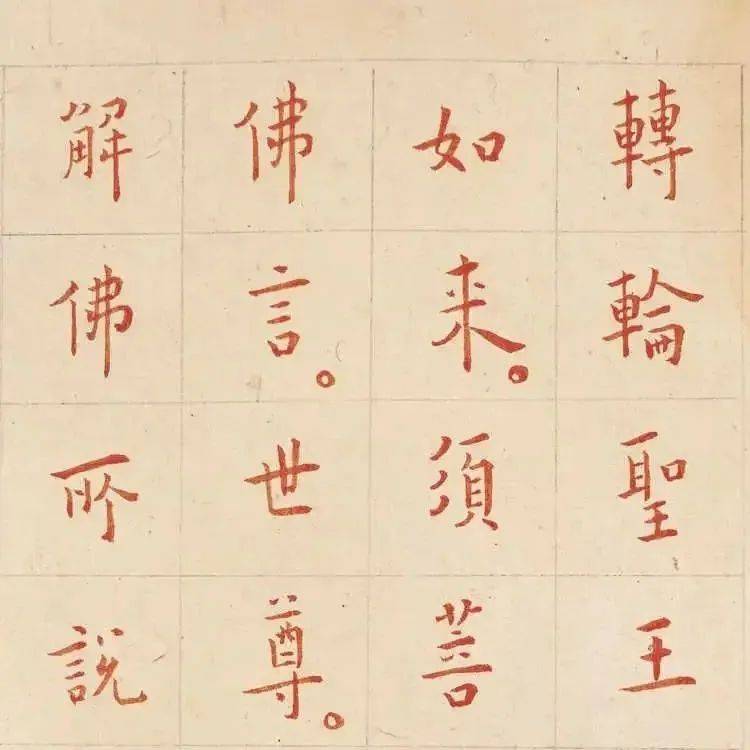 轉輪聖王
如來。須菩
佛言。世尊。
解佛所說